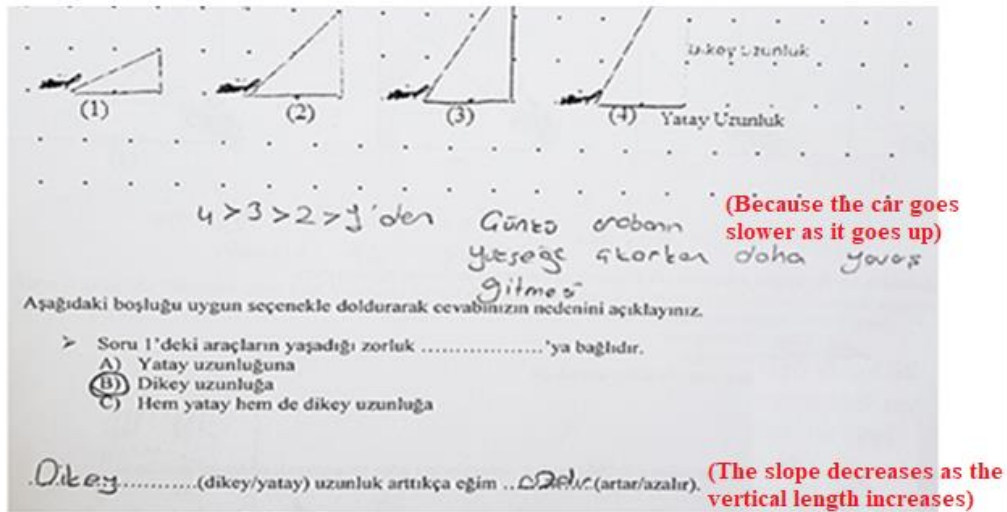 Dikey Uzunluk
(1) (2) (3) (4) Yatay Uzunluk
4 > 3 > 2 > 1'den Günkü arabanın
(Because the car goes
slower as it goes up)
yükseğe çıkarken daha yavaş
gitmesi
Aşağıdaki boşluğu uygun seçenekle doldurarak cevabınızın nedenini açıklayınız.
➢ Soru 1'deki araçların yaşadığı zorluk ..................'ya bağlıdır.
A) Yatay uzunluğuna
B) Dikey uzunluğa
C) Hem yatay hem de dikey uzunluğa
.Dikey............(dikey/yatay) uzunluk arttıkça eğim ..azalır.(artar/azalır).
(The slope decreases as the
vertical length increases)